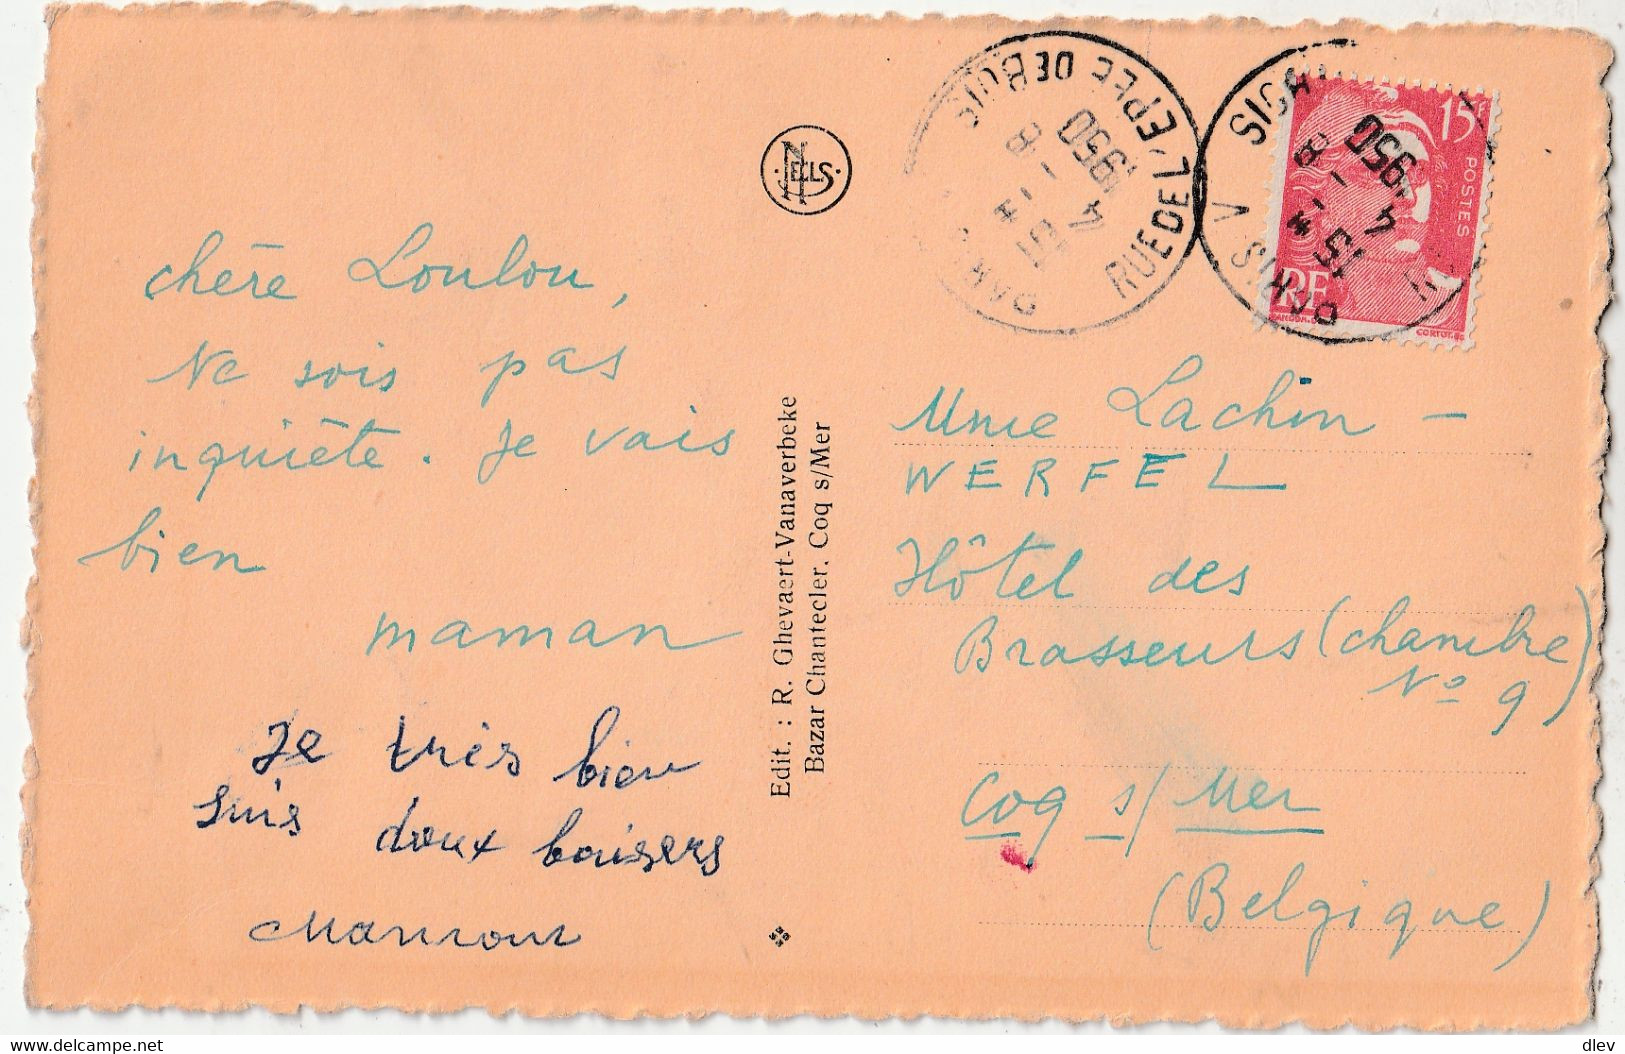 chère Loulou,
Ne sois pas
inquiète. Je vais
bien
maman
Je très bien
suis doux baisers
NELLS
Edit. : R. Ghevaert-Vanaverbeke
Bazar Chantecler, Coq s/Mer
RUE DE L'EPEE DE BOIS
15 - 4
1950
15F
POSTES
RF
Mme Lachin -
WERFEL
Hôtel des
Brasseurs (chambre
No 9)
Coq s/ Mer
(Belgique)
www.delcampe.net
dlev